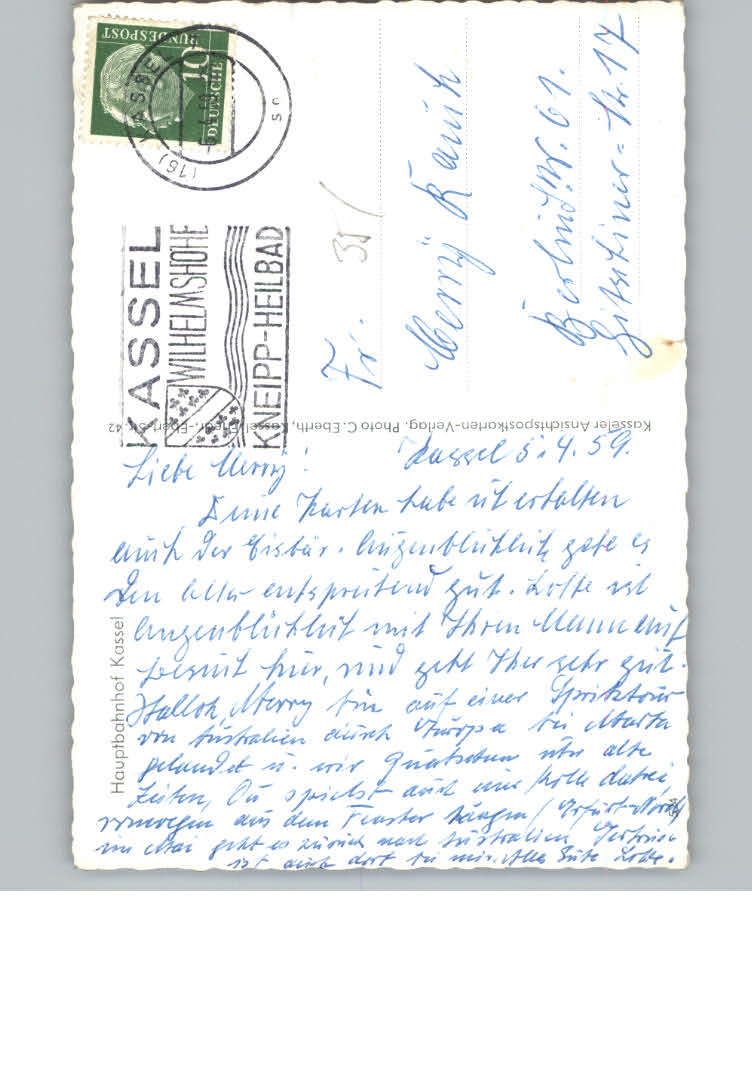 DEUTSCHE
BUNDESPOST
10
(16) KASSEL
-6.4.59
sn
KASSEL
WILHELMSHÖHE
KNEIPP-HEILBAD
35/
Fr.
Merry Rauch
Berlin S.W. 61.
Gitschiner-Str. 17
Kasseler Ansichtspostkarten-Verlag. Photo C. Eberth, Kassel, Friedr.-Ebert-Str. 42
Hauptbahnhof Kassel
Kassel 5.4.59.
Liebe Merry!
Deine Karten habe ich erhalten
auch der Eisbär. Augenblicklich geht es
den Alter entsprechend gut. Lotte ist
Augenblicklich mit Ihren Mann auf
besuch hier, und geht Iher sehr gut.
Halloh, Merry bin auf einer Spritztour
von Australien durch Europa bei Marta
gelandet u. wir Quatschen über alte
Zeiten, Du spielst auch eine Rolle dabei
wegen aus dem Fenster hängen (Erfurt-Nord)
im Mai geht es zurück nach Australien,
ist auch dort bei mir. Alles Gute Lotte.